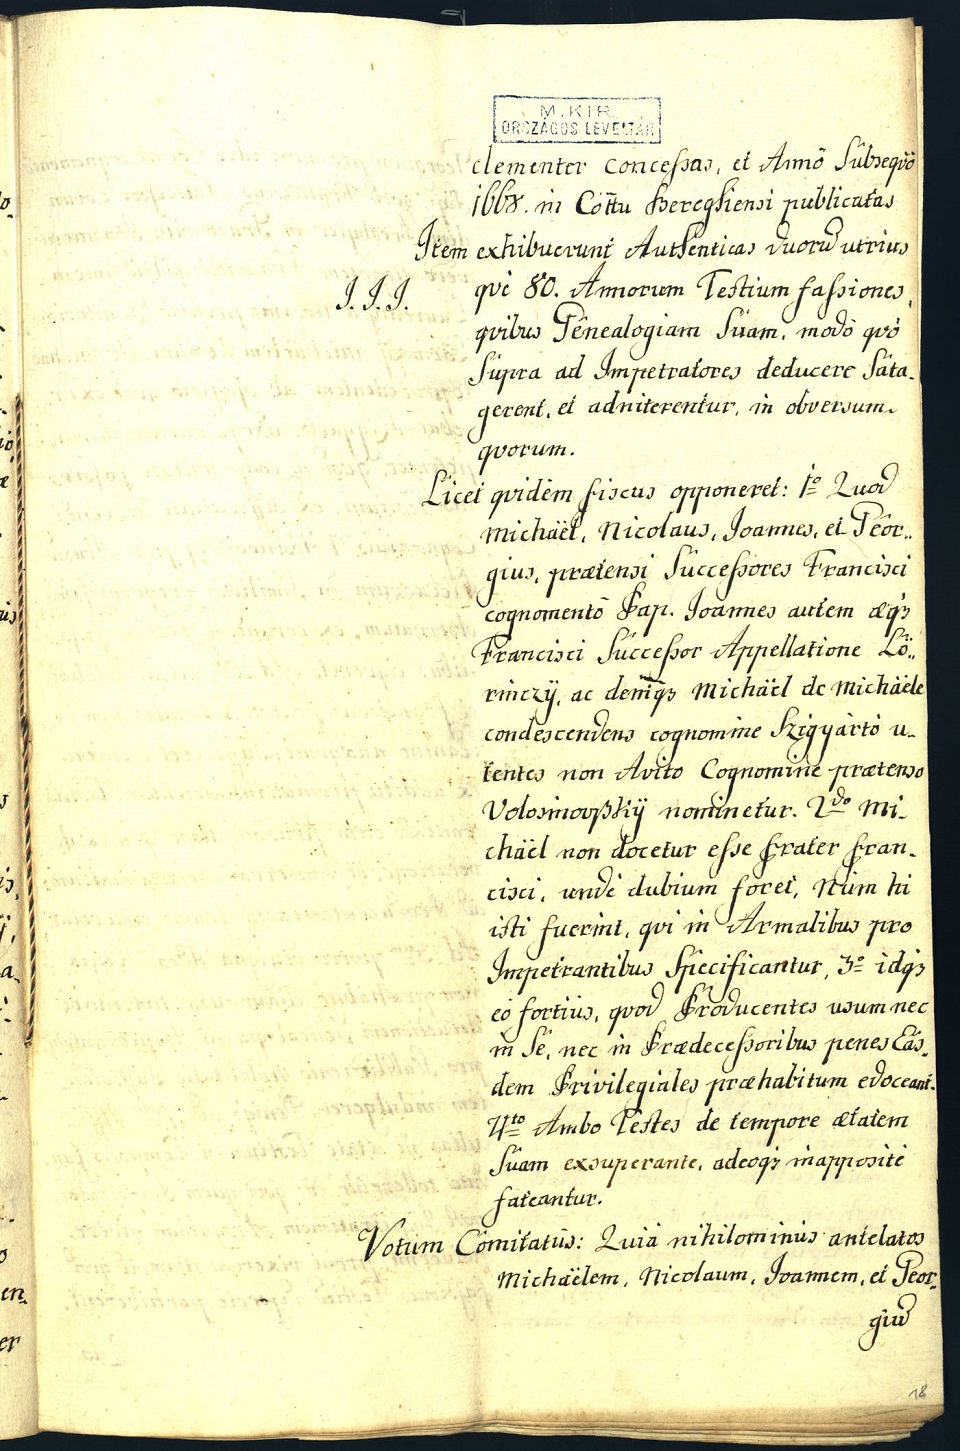 M. KIR.
ORSZÁGOS LEVÉLTÁR
clementer concessas, et Annô Subseqvô
1668. in Cottu Bereghiensi publicatas
Item exhibuerunt Authenticas duorũ utrius
I. I. I. qve 80. Annorum Testium fassiones,
qvibus Genealogiam Suam, modô qvô
Supra ad Impetratores deducere Sata-
gerent, et adniterentur, in obversum
qvorum.
Licet qvidem fiscus opponeret: 1o Quod
Michaël, Nicolaus, Joannes, et Geor-
gius, prætensi Successores Francisci
cognomentô Pap. Joannes autem æqȝ
Francisci Successor Appellatione Lö-
rinczÿ, ac deniqȝ Michaël de Michaële
condescendens cognomine Szigyàrtó u-
tentes non Avito Cognomine prætenso
Volosinovszkÿ nominetur. 2do Mi-
chaël non docetur esse frater fran-
cisci, unde dubium foret, Num hi
isti fuerint, qvi in Armalibus pro
Impetrantibus Specificantur, 3o idqȝ
eó fortiùs, qvod Producentes usum nec
in Se, nec in Prædecessoribus penes Eas-
dem Privilegiales præhabitum edoceant.
4to Ambo Testes de tempore ætatem
Suam exsuperante, adeoqȝ inappositè
fateantur.
Votum Comitatûs: Quia nihilominùs antelatos
Michaëlem, Nicolaum, Joannem, et Geor-
giũ
18